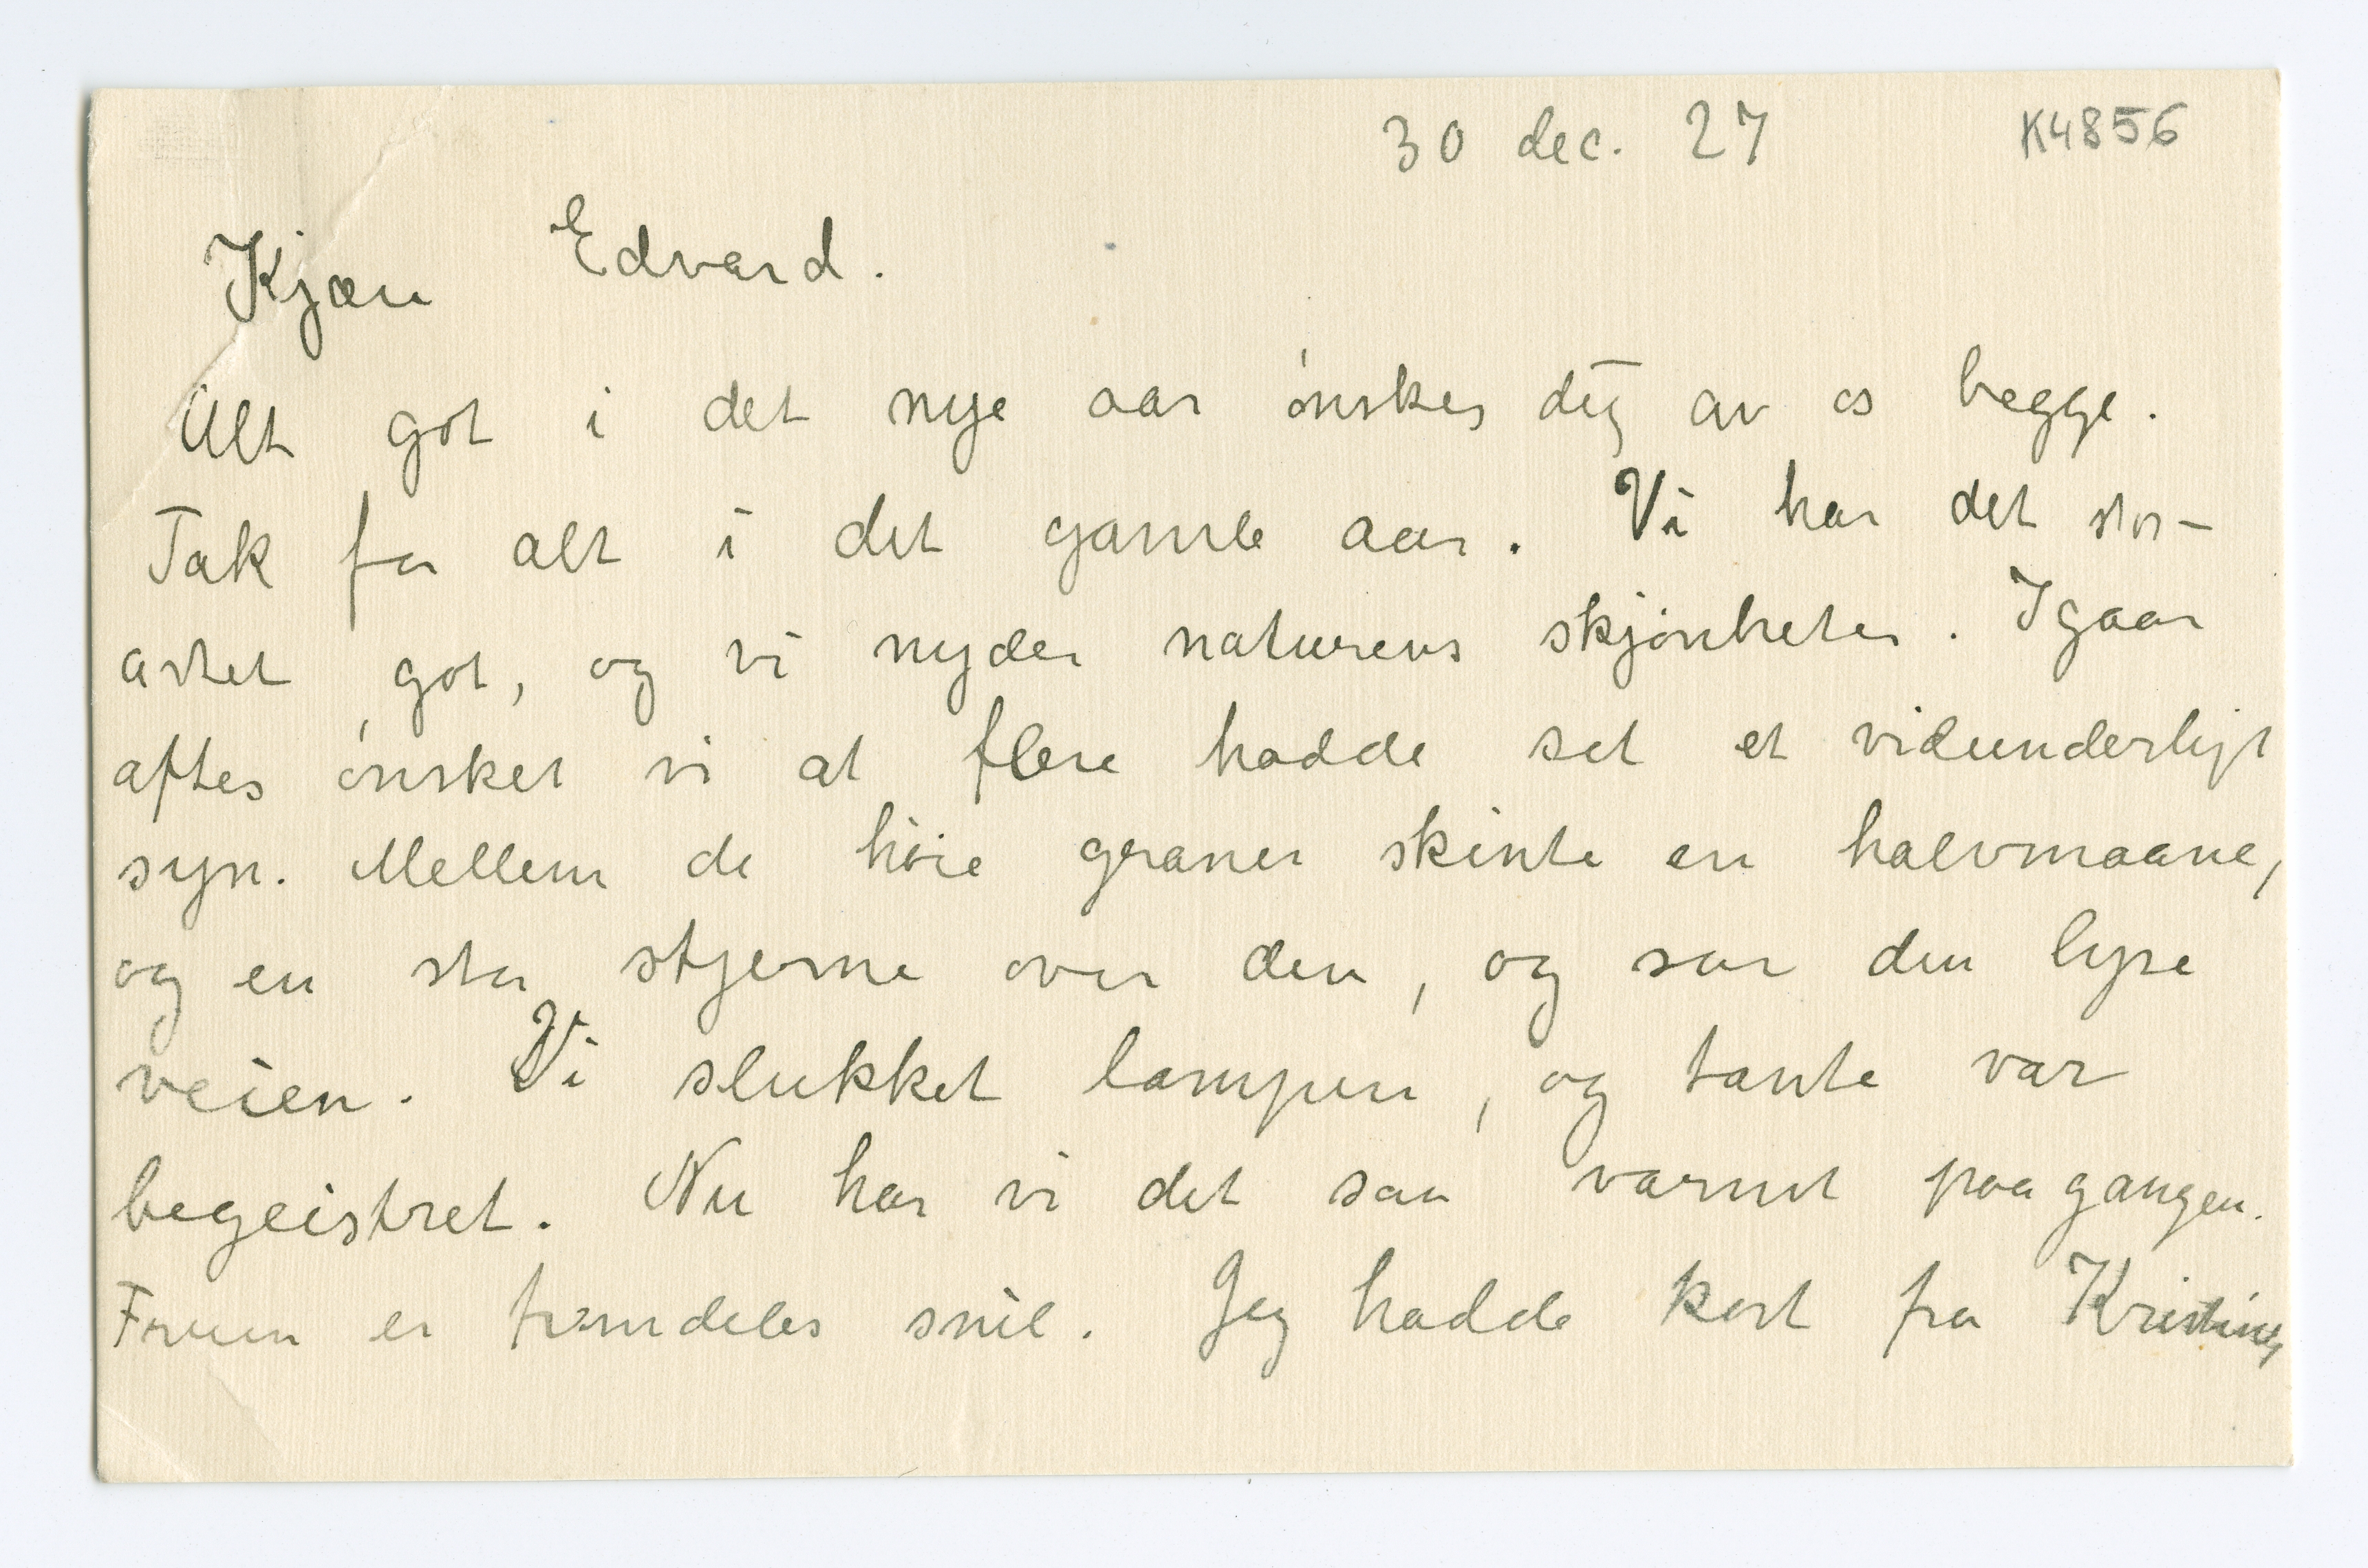 30 dec. 27 K4856
Kjære Edvard.
Alt got i det nye aar ønskes dig av os begge.
Tak for alt i det gamle aar. Vi har det stor-
artet got, og vi nyder naturens skjønheter. Igaar
aftes ønsket vi at flere hadde set et vidunderligt
syn. Mellem de høie graner skinte en halvmaane,
og en stor stjerne over den, og saa den lyse
veien. Vi slukket lampen, og tante var
begeistret. Nu har vi det saa varmt paa gangen.
Fruen er fremdeles snil. Jeg hadde kort fra Kristine,